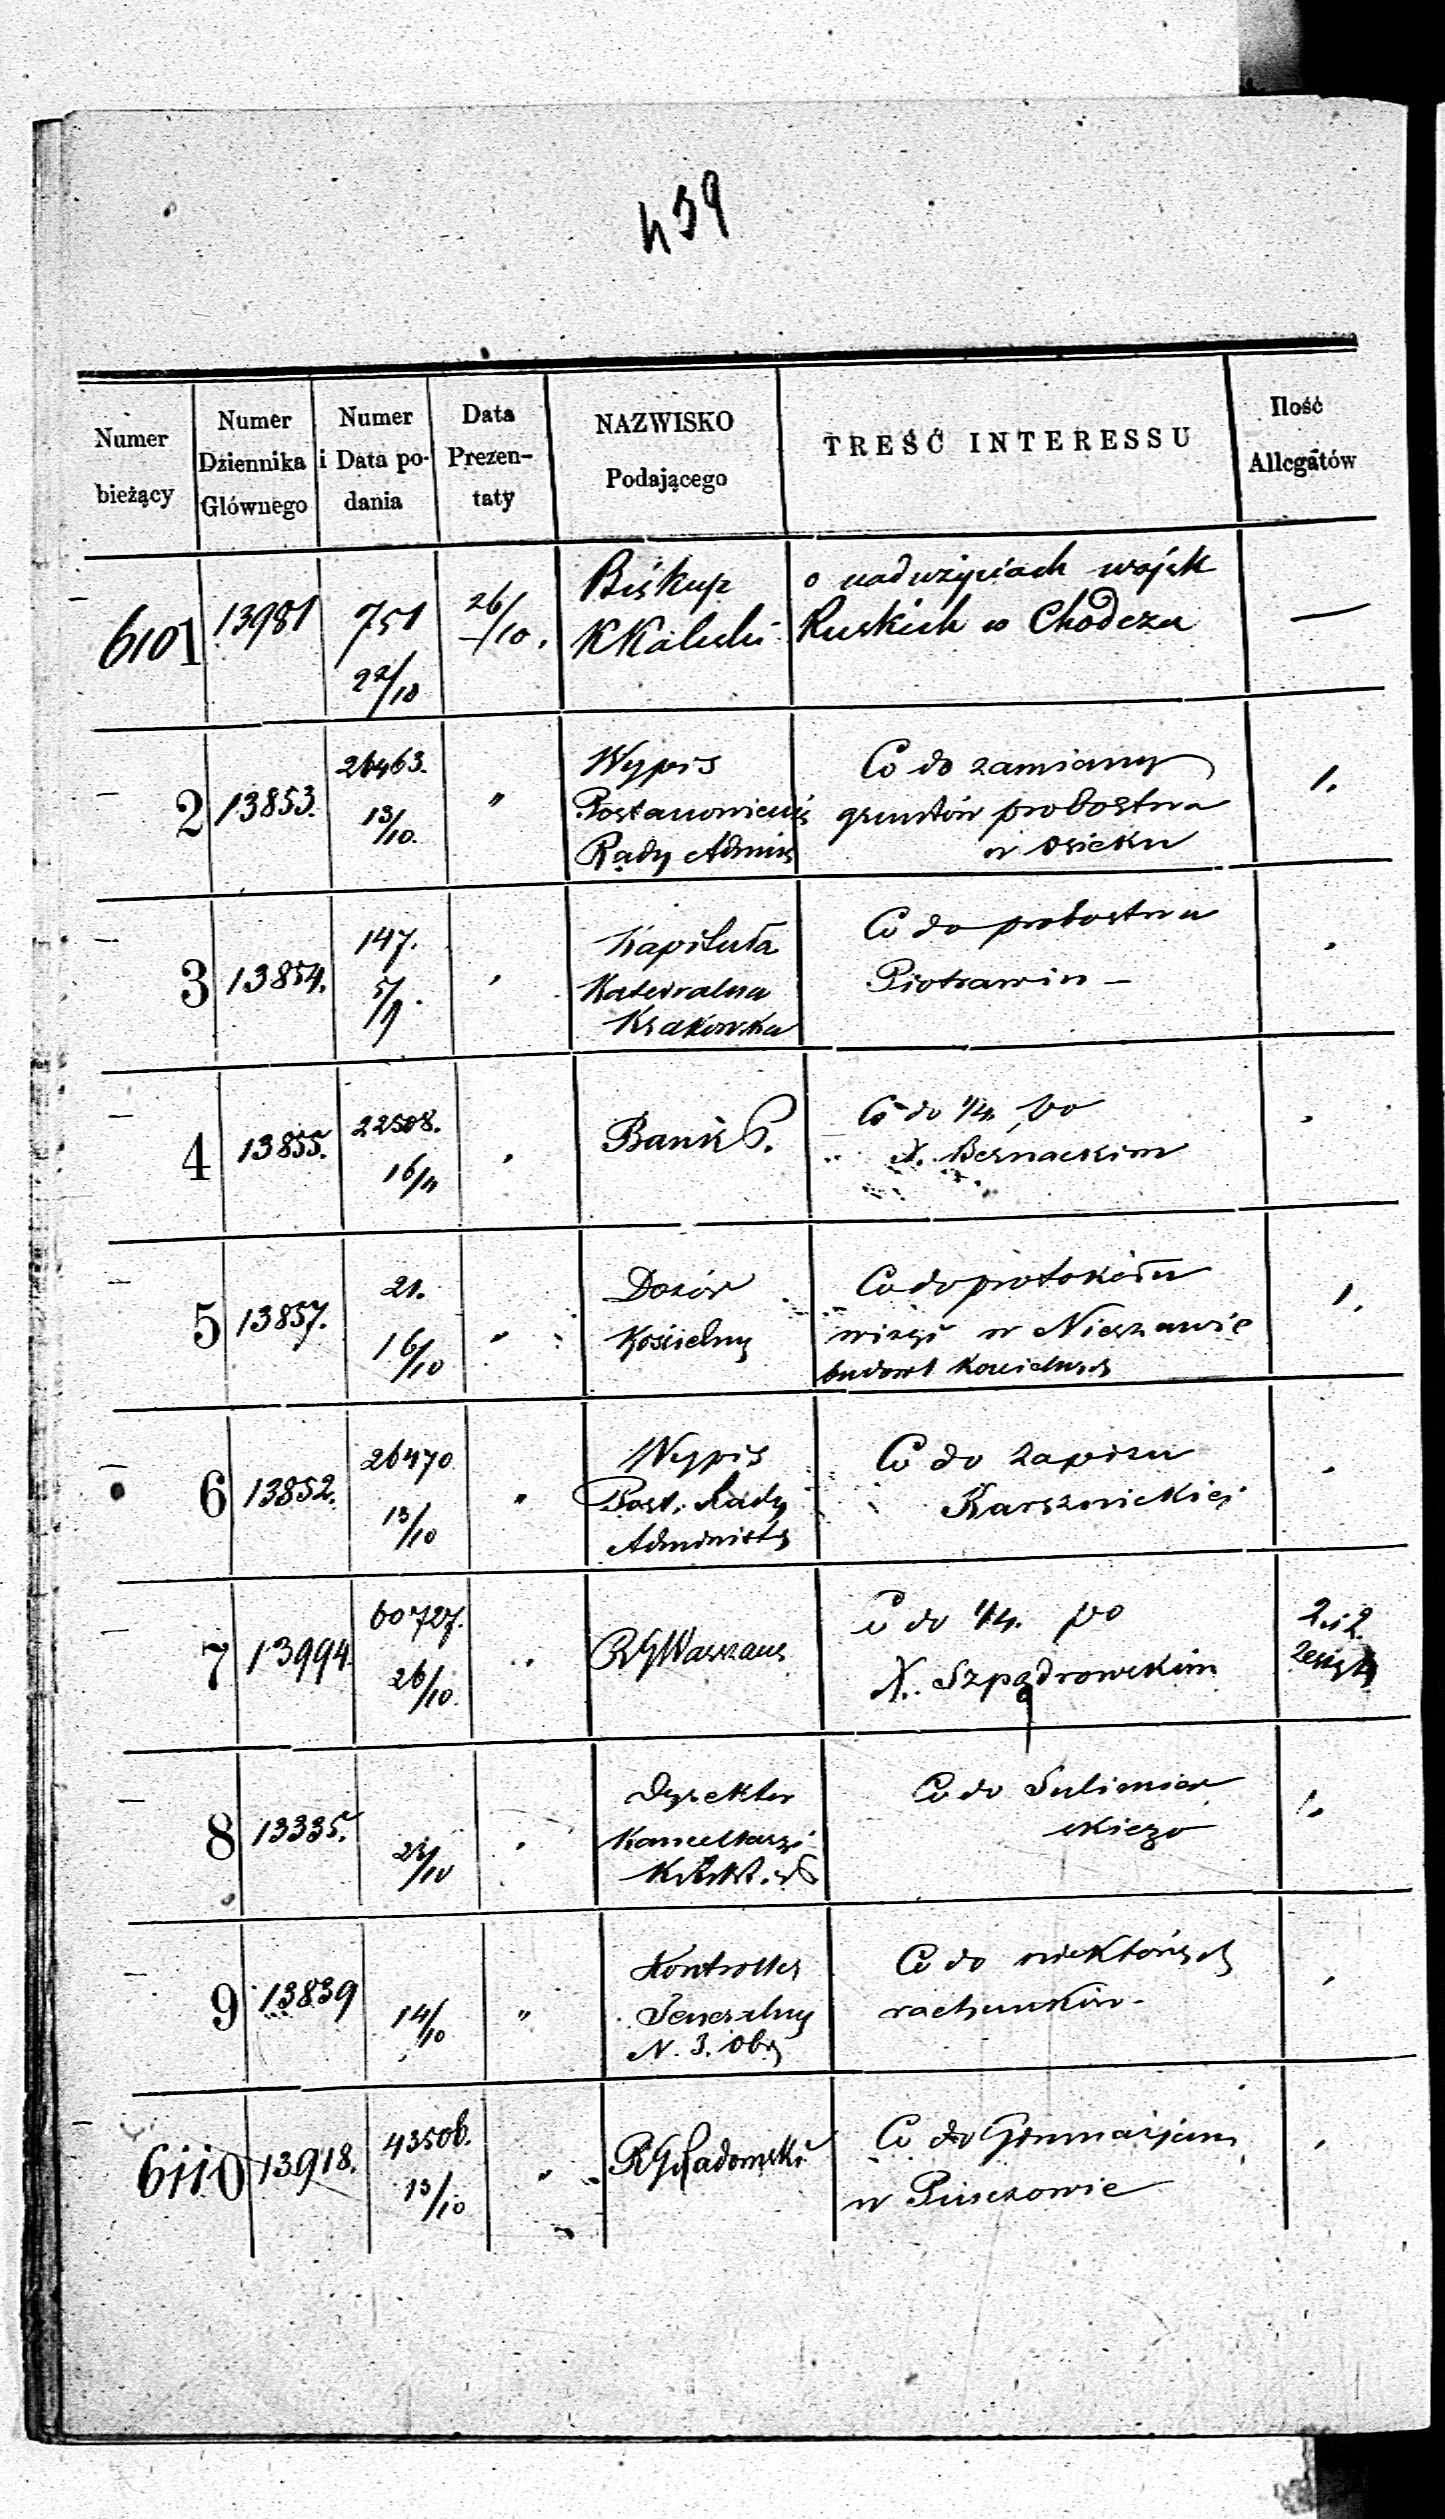 459
Numer bieżący | Numer Dziennika Głównego | Numer i Data podania | Data Prezentaty | NAZWISKO Podającego | TREŚĆ INTERESSU | Ilość Allegatów
6101 | 13981 | 751 22/10 | 26/10. | Biskup KKaliski | o nadużyciach wojsk Ruskich w Chodczu | —
2 | 13853. | 26463. 13/10. | " | Wypis Postanowienia Rady Admin | Co do zamiany gruntów probostwa w Osieku | 1.
3 | 13854. | 147. 5/9. | " | Kapituła Katedralna Krakowska | Co do probostwa Piotrawin – | .
4 | 13855. | 22508. 16/11 | " | Bank P. | Co do 1/4. po X. Bernackim | .
5 | 13857. | 21. 16/10 | " | Dozór Kościelny | Co do protokółu wizyi w Nieszawie budowl Kościelnych | 1.
6 | 13852. | 26470 13/10 | " | Wypis Post. Rady Administr | Co do zapisu Karsznickiej | .
7 | 13994. | 60727. 26/10. | " | RGWarszaws | Co do 1/4. po X. Szpądrowskim | 2 i 2. zeszyty
8 | 13335. | 23/10 | " | Dyrektor Kancellaryi | Co do Sulimier skiego | 1.
9 | 13839 | 14/10 | " | Kontroller Generalny N. 3. Obr | Co do niektórych rachunków – | .
6110 | 13918. | 43506. 13/10 | " | RGRadomski | Co do Gimnazjum w Pinczowie | .